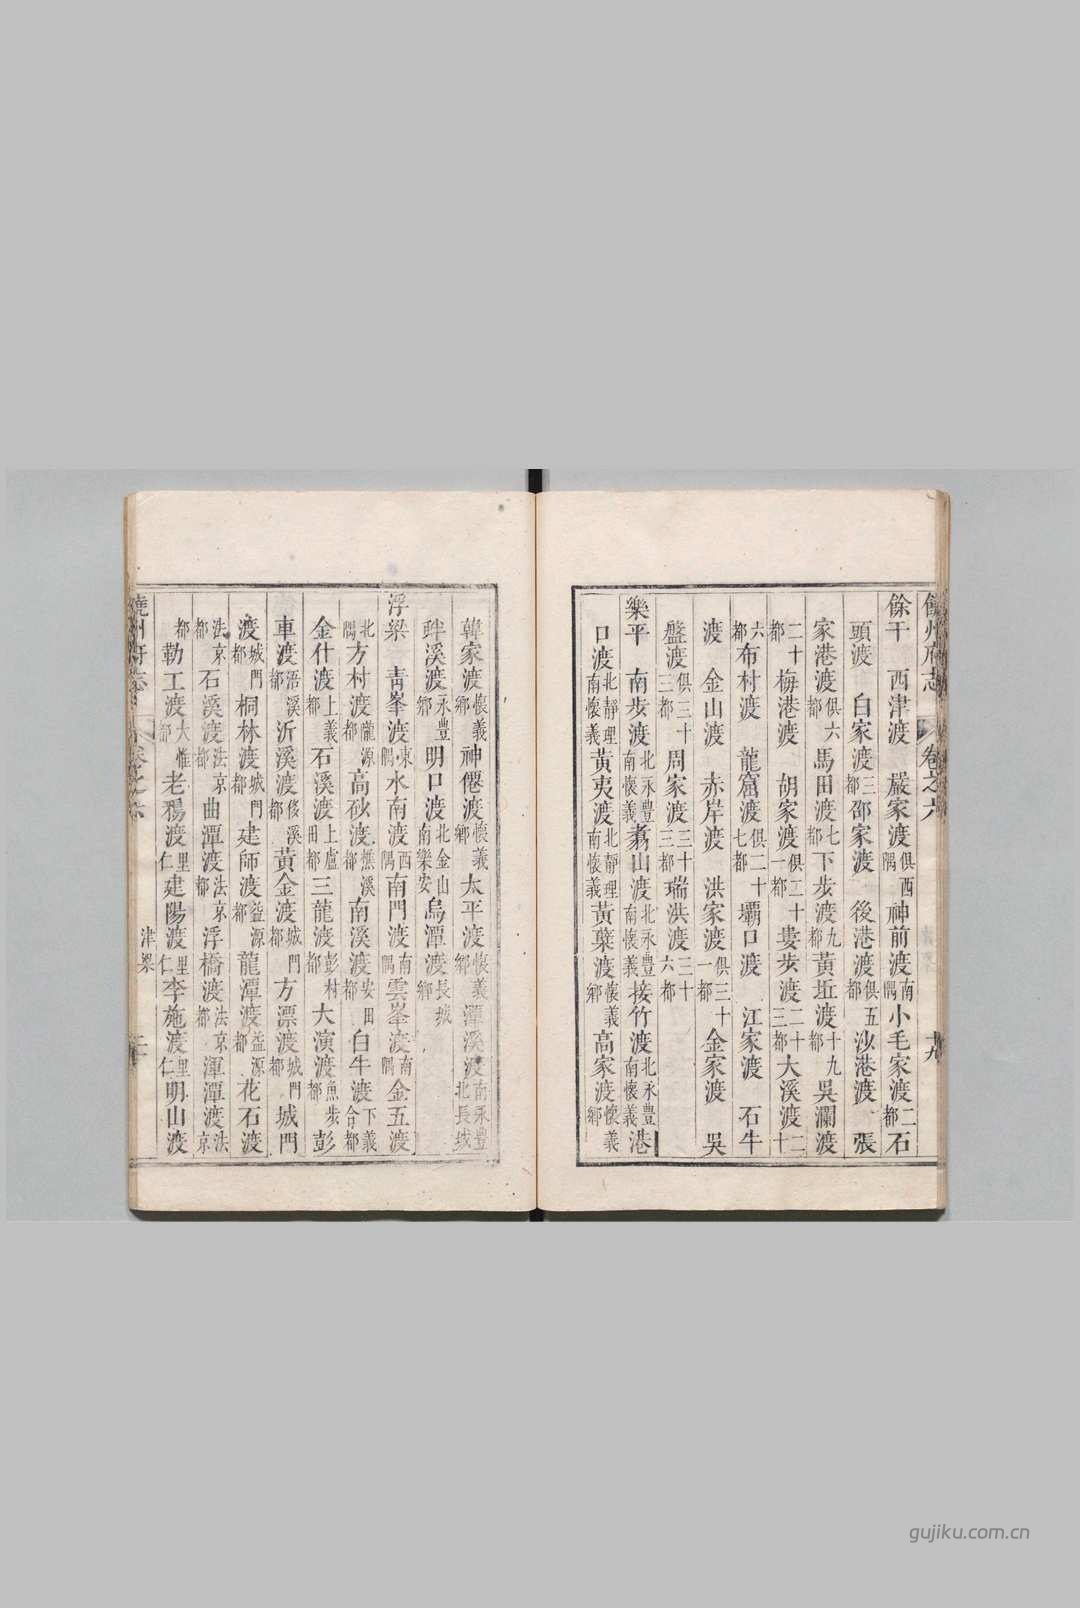 饒州府志 卷之六 十九
餘干 西津渡 嚴家渡俱西隅神前渡南隅小毛家渡二都石
頭渡 白家渡三都邵家渡 後港渡俱五都沙港渡 張
家港渡俱六都馬田渡七都下步渡九都黃坵渡十九都吳瀾渡
二十都梅港渡 胡家渡俱二十一都婁步渡二十三都大溪渡二十
六都布村渡 龍窟渡俱二十七都壩口渡 江家渡 石牛
渡 金山渡 赤岸渡 洪家渡俱三十一都金家渡 吳
盤渡俱三十三都周家渡三十三都瑞洪渡三十六都
樂平 南步渡北永豐南懷義翥山渡北永豐南懷義接竹渡北永豐南懷義港
口渡北靜理南懷義黃夷渡北靜理南懷義黃葉渡懷義鄉高家渡懷義鄉
韓家渡懷義鄉神僊渡懷義鄉太平渡懷義鄉潭溪渡南永豐北長城
畔溪渡永豐鄉明口渡北金山南樂安烏潭渡長城鄉
浮梁 青峯渡東隅水南渡西隅南門渡南隅雲峯渡南隅金五渡
北隅方村渡隴源都高砂渡樵溪都南溪渡安田都白牛渡下義合都
金什渡上義都石溪渡上盧田都三龍渡彭村都大演渡魚步都彭
車渡浯溪都沂溪渡㑪溪都黃金渡城門都方漂渡城門都城門
渡城門都桐林渡城門都建師渡益源都龍潭渡益源都花石渡
法京都石溪渡法京都曲潭渡法京都浮橋渡法京都渾潭渡法京
都勒工渡大惟都老鴉渡里仁建陽渡里仁李施渡里仁明山渡
饒州府志 卷之六 津梁 二十
gujiku.com.cn